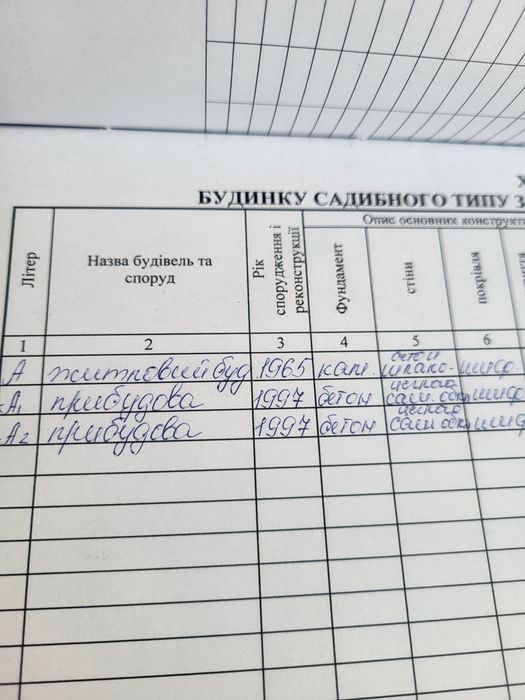 Х
БУДИНКУ САДИБНОГО ТИПУ З
Літер
Назва будівель та
споруд
Рік
спорудження і
реконструкції
Опис основних конструкт
Фундамент
стіни
покрівля
1 2 3 4 5 6
А житловий буд. 1965 кам. бетон шлако- шиф
А1 прибудова 1997 бетон цегляна шиф
А2 прибудова 1997 бетон цегляна шиф